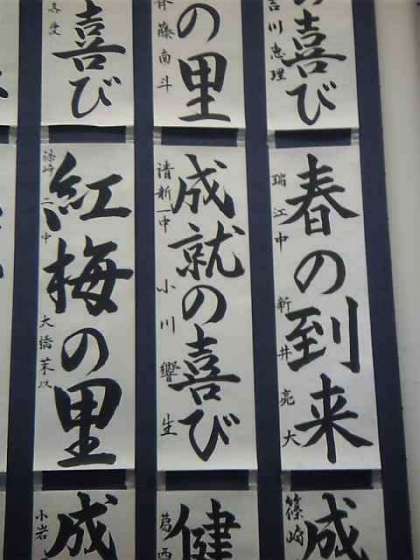 の喜び
吉川恵理
の里
喜び
春の到来
瑞江中 新井亮大
成就の喜び
清新一中 小川響生
紅梅の里
篠崎二中
成
篠崎
健
葛西
成
小岩